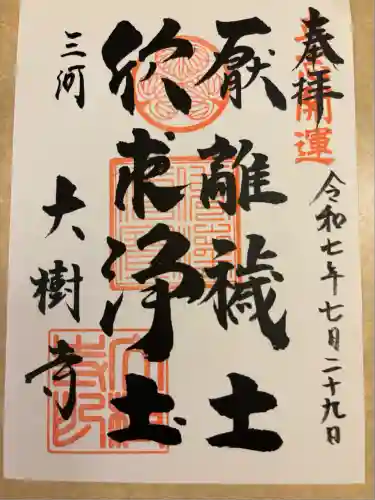 奉拝
開運
令和七年七月二十九日
厭離穢土
欣求浄土
三河
大樹寺